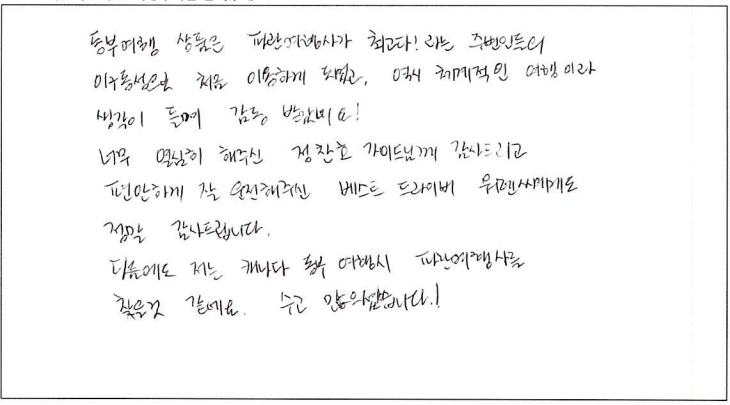 동부여행 상품은 파란여행사가 최고다! 라는 주변인들의
이구동성으로 처음 이용하게 되었고, 역시 체계적인 여행이라
생각이 들며 감동 받았네요!
너무 열심히 해주신 정찬호 가이드님께 감사드리고
편안하게 잘 운전해주신 베스트 드라이버 씨에게도
정말 감사드립니다.
다음에도 저는 캐나다 동부 여행시 파란여행사를
찾을것 같네요. 수고 많으셨습니다.!